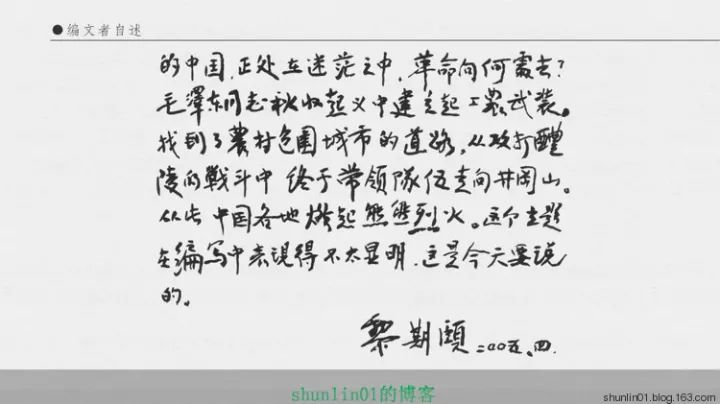 ●编文者自述
的中国,正处在迷茫之中,革命向何处去?
毛澤东同志秋收起义中建立起工農武装。
找到了農村包围城市的道路,从攻打醴
陵的戰斗中 终于带领隊伍走向井岡山。
从此中国各地燃起熊熊烈火。这个主题
在编写中表现得不太显明,这是今天要说
的。
黎期頤 二〇〇五、四.
shunlin01的博客
shunlin01.blog.163.com